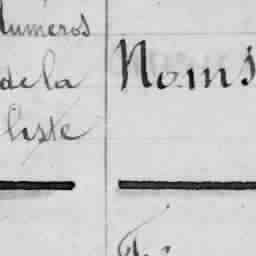 Numéros
de la
liste
Noms